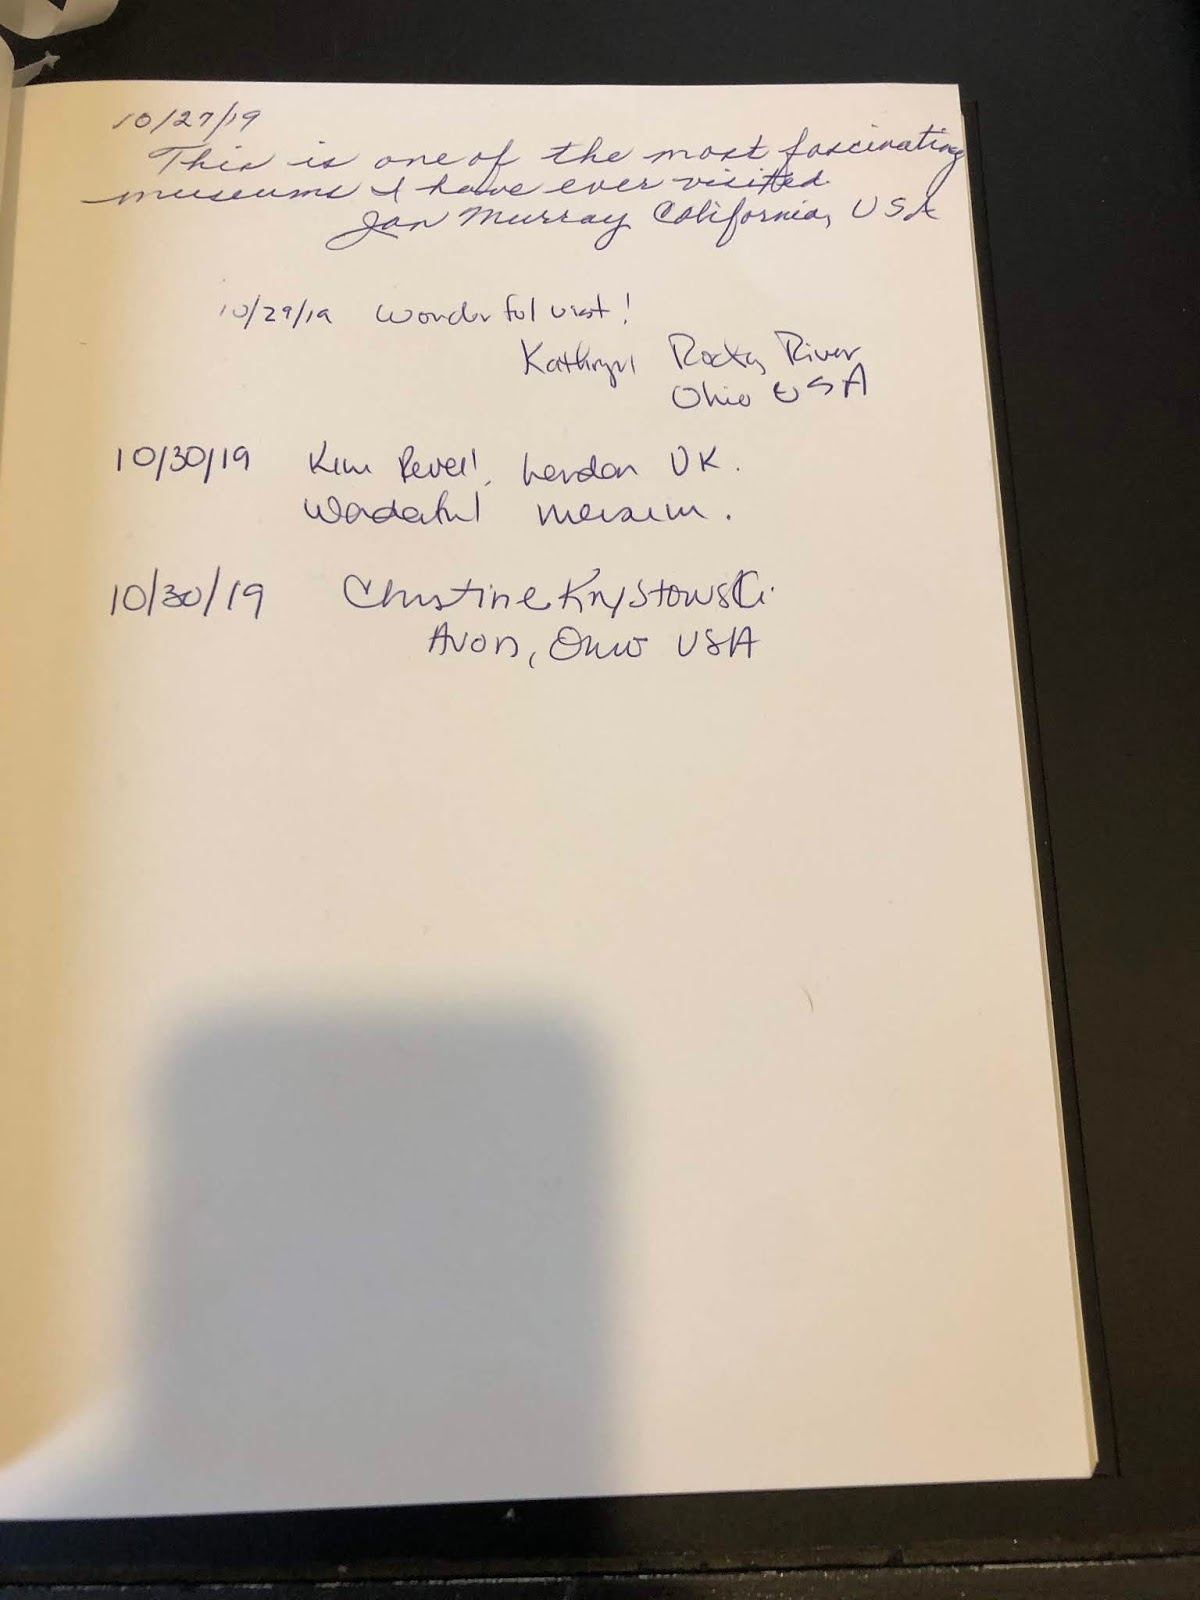 10/27/19
This is one of the most fascinating
museums I have ever visited.
Jan Murray California, USA
10/29/19 Wonderful visit!
Kathryn Rocky River
Ohio USA
10/30/19 Kim Revell, London UK.
Wonderful museum.
10/30/19 Christine Krystowski
Avon, Ohio USA